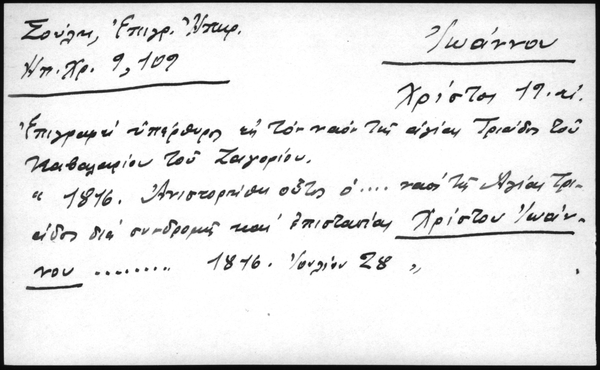 Σούλη, Ἐπιγρ. Ἠπειρ.
Ἠπ. Χρ. 9, 109
Ἰωάννου
Χρίστος 19. αἰ.
Ἐπιγραφὴ ὑπέρθυρος εἰς τὸν ναὸν τῆς ἁγίας Τριάδος τοῦ
Καβαλαρίου τοῦ Ζαγορίου.
" 1816. Ἀνιστορήθη οὗτος ὁ .... ναὸς τῆς Ἁγίας Τρι-
άδος διὰ συνδρομῆς καὶ ἐπιστασίας Χρίστου Ἰωάν-
νου ......... 1816. Ἰουλίου 28 "